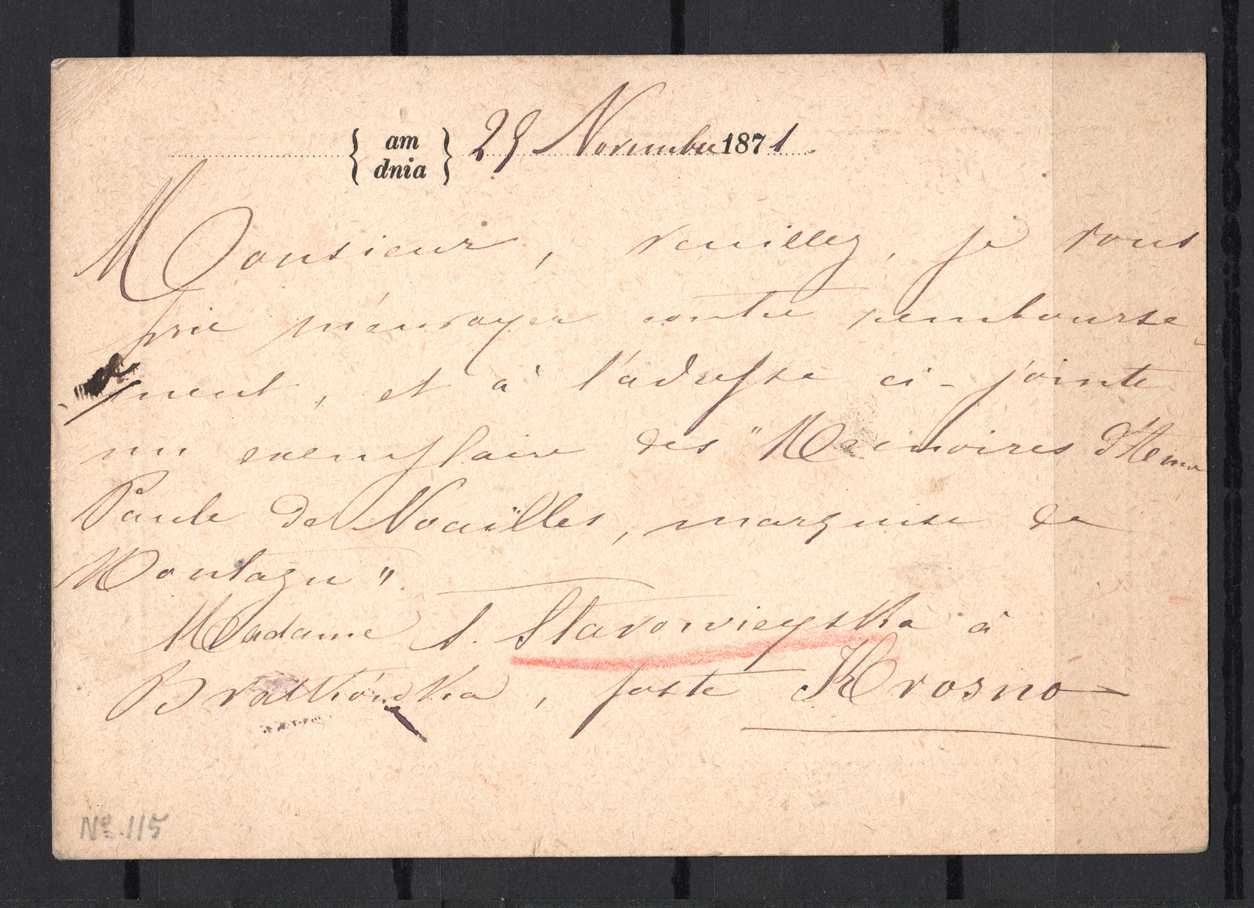 { am dnia } 29 Novembre 1871.
Monsieur, veuillez, je vous
prie m'envoyer contre rembourse-
ment, et à l'adresse ci-jointe
un exemplaire des "Memoires d'Anne
Paule de Noailles, marquise de
Montagu".
Madame S. Starowieyska à
Bratkówka, poste Krosno
No. 115